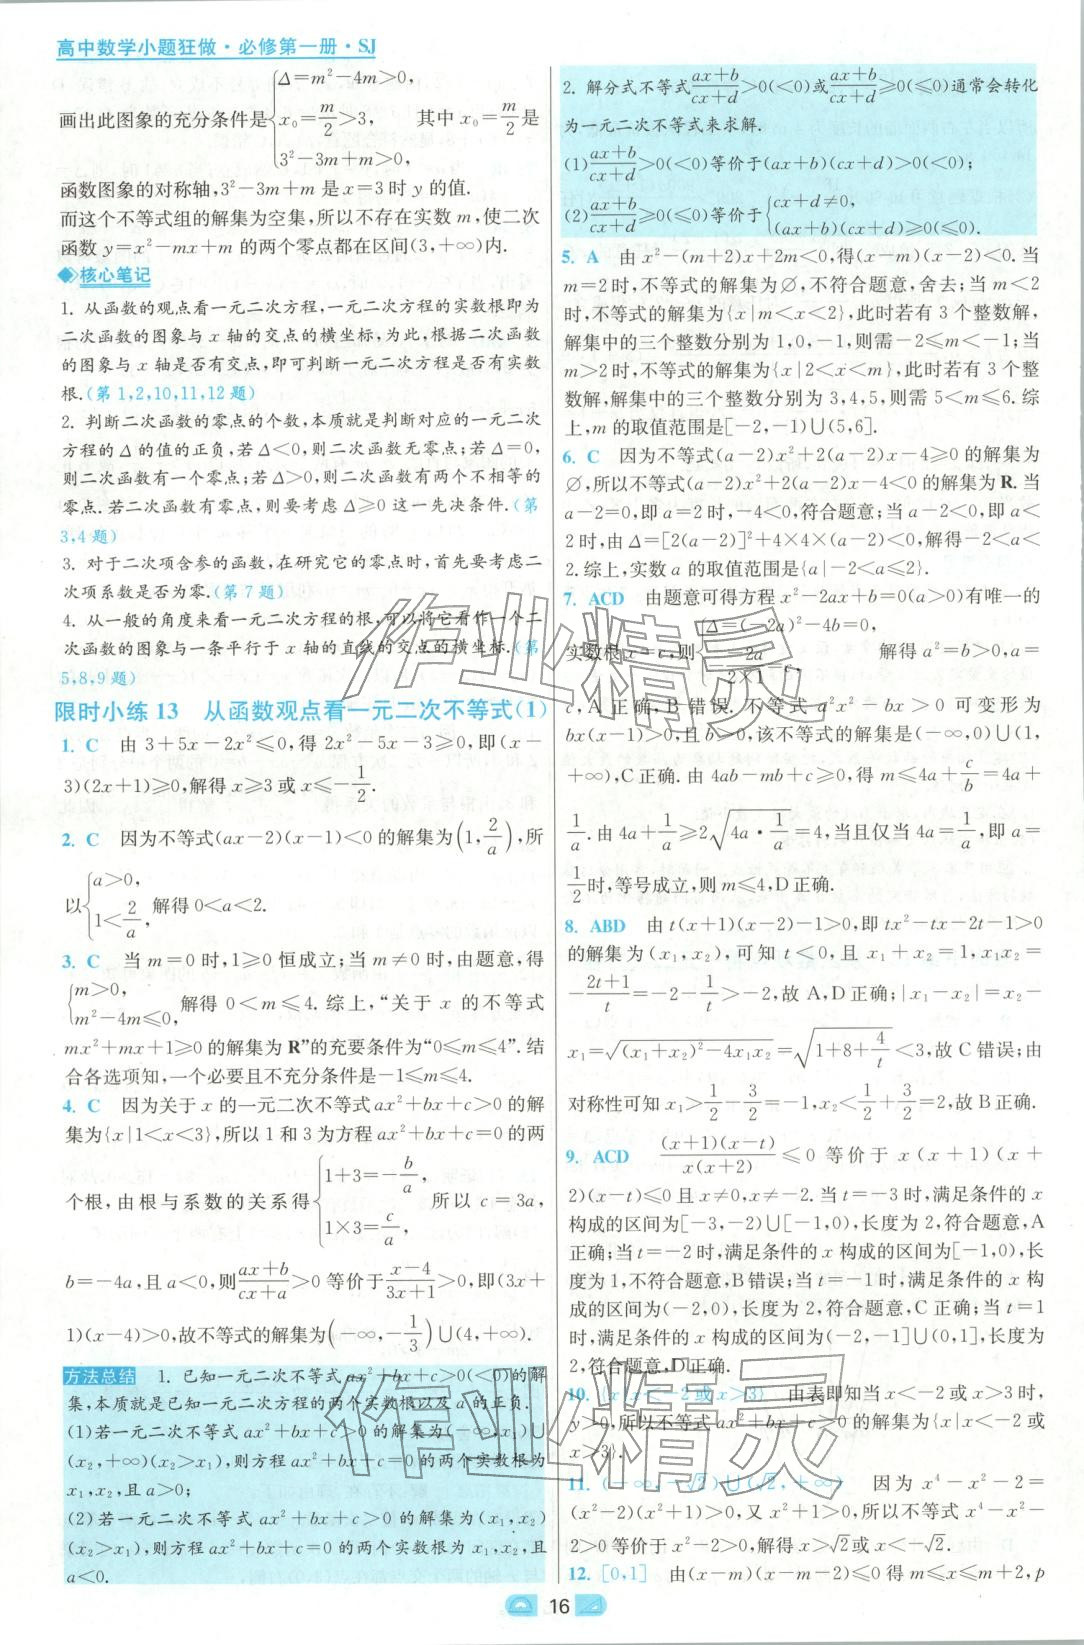 高中数学小题狂做·必修第一册·SJ
画出此图象的充分条件是{Δ=m²-4m>0, x₀=m/2>3, 3²-3m+m>0, 其中 x₀=m/2 是
函数图象的对称轴,3²-3m+m 是 x=3 时 y 的值.
而这个不等式组的解集为空集,所以不存在实数 m,使二次
函数 y=x²-mx+m 的两个零点都在区间(3,+∞)内.
核心笔记
1. 从函数的观点看一元二次方程,一元二次方程的实数根即为
二次函数的图象与 x 轴的交点的横坐标,为此,根据二次函数
的图象与 x 轴是否有交点,即可判断一元二次方程是否有实数
根.(第 1,2,10,11,12 题)
2. 判断二次函数的零点的个数,本质就是判断对应的一元二次
方程的 Δ 的值的正负,若 Δ<0,则二次函数无零点;若 Δ=0,
则二次函数有一个零点;若 Δ>0,则二次函数有两个不相等的
零点.若二次函数有零点,则要考虑 Δ≥0 这一先决条件.(第
3,4 题)
3. 对于二次项含参的函数,在研究它的零点时,首先要考虑二
次项系数是否为零.(第 7 题)
4. 从一般的角度来看一元二次方程的根,可以将它看作一个二
次函数的图象与一条平行于 x 轴的直线的交点的横坐标.(第
5,8,9 题)
限时小练 13 从函数观点看一元二次不等式(1)
1. C 由 3+5x-2x²≤0,得 2x²-5x-3≥0,即(x-
3)(2x+1)≥0,解得 x≥3 或 x≤-1/2.
2. C 因为不等式(ax-2)(x-1)<0 的解集为(1,2/a),所
以{a>0, 1<2/a, 解得 0<a<2.
3. C 当 m=0 时,1≥0 恒成立;当 m≠0 时,由题意,得
{m>0, m²-4m≤0, 解得 0<m≤4. 综上,“关于 x 的不等式
mx²+mx+1≥0 的解集为 R”的充要条件为“0≤m≤4”.结
合各选项知,一个必要且不充分条件是-1≤m≤4.
4. C 因为关于 x 的一元二次不等式 ax²+bx+c>0 的解
集为{x|1<x<3},所以 1 和 3 为方程 ax²+bx+c=0 的两
个根,由根与系数的关系得{1+3=-b/a, 1×3=c/a, 所以 c=3a,
b=-4a,且 a<0,则(ax+b)/(cx+a)>0 等价于(x-4)/(3x+1)<0,即(3x+
1)(x-4)>0,故不等式的解集为(-∞,-1/3)∪(4,+∞).
方法总结 1. 已知一元二次不等式 ax²+bx+c>0(<0)的解
集,本质就是已知一元二次方程的两个实数根以及 a 的正负.
(1)若一元二次不等式 ax²+bx+c>0 的解集为(-∞,x₁)∪
(x₂,+∞)(x₂>x₁),则方程 ax²+bx+c=0 的两个实数根为
x₁,x₂,且 a>0;
(2)若一元二次不等式 ax²+bx+c>0 的解集为(x₁,x₂)
(x₂>x₁),则方程 ax²+bx+c=0 的两个实数根为 x₁,x₂,且
a<0.
2. 解分式不等式(ax+b)/(cx+d)>0(<0)或(ax+b)/(cx+d)≥0(≤0)通常会转化
为一元二次不等式来求解.
(1)(ax+b)/(cx+d)>0(<0)等价于(ax+b)(cx+d)>0(<0);
(2)(ax+b)/(cx+d)≥0(≤0)等价于{cx+d≠0, (ax+b)(cx+d)≥0(≤0).
5. A 由 x²-(m+2)x+2m<0,得(x-m)(x-2)<0. 当
m=2 时,不等式的解集为∅,不符合题意,舍去;当 m<2
时,不等式的解集为{x|m<x<2},此时若有 3 个整数解,
解集中的三个整数分别为 1,0,-1,则需-2≤m<-1;当
m>2 时,不等式的解集为{x|2<x<m},此时若有 3 个整
数解,解集中的三个整数分别为 3,4,5,则需 5<m≤6.综
上,m 的取值范围是[-2,-1)∪(5,6].
6. C 因为不等式(a-2)x²+2(a-2)x-4≥0 的解集为
∅,所以不等式(a-2)x²+2(a-2)x-4<0 的解集为 R.当
a-2=0,即 a=2 时,-4<0,符合题意;当 a-2<0,即 a<
2 时,由 Δ=[2(a-2)]²+4×4×(a-2)<0,解得-2<a<
2.综上,实数 a 的取值范围是{a|-2<a≤2}.
7. ACD 由题意可得方程 x²-2ax+b=0(a>0)有唯一的
实数根 x=c,则{Δ=(-2a)²-4b=0, -(-2a)/(2×1)=c, 解得 a²=b>0,a=
c,A 正确,B 错误. 不等式 a²x²-bx>0 可变形为
bx(x-1)>0,且 b>0,该不等式的解集是(-∞,0)∪(1,
+∞),C 正确.由 4ab-mb+c≥0,得 m≤4a+c/b=4a+
1/a.由 4a+1/a≥2√(4a·1/a)=4,当且仅当 4a=1/a,即 a=
1/2时,等号成立,则 m≤4,D 正确.
8. ABD 由 t(x+1)(x-2)-1>0,即 tx²-tx-2t-1>0
的解集为(x₁,x₂),可知 t<0,且 x₁+x₂=1,x₁x₂=
-(2t+1)/t=-2-1/t>-2,故 A,D 正确;|x₁-x₂|=x₂-
x₁=√((x₁+x₂)²-4x₁x₂)=√(1+8+4/t)<3,故 C 错误;由
对称性可知 x₁>1/2-3/2=-1,x₂<1/2+3/2=2,故 B 正确.
9. ACD (x+1)(x-t)/x(x+2)≤0 等价于 x(x+1)(x+
2)(x-t)≤0 且 x≠0,x≠-2. 当 t=-3 时,满足条件的 x
构成的区间为[-3,-2)∪[-1,0),长度为 2,符合题意,A
正确;当 t=-2 时,满足条件的 x 构成的区间为[-1,0),长
度为 1,不符合题意,B 错误;当 t=-1 时,满足条件的 x 构
成的区间为(-2,0),长度为 2,符合题意,C 正确;当 t=1
时,满足条件的 x 构成的区间为(-2,-1]∪(0,1],长度为
2,符合题意,D 正确.
10. {x|x<-2 或 x>3} 由表即知当 x<-2 或 x>3 时,
y>0,所以不等式 ax²+bx+c>0 的解集为{x|x<-2 或
x>3}.
11. (-∞,-√2)∪(√2,+∞) 因为 x⁴-x²-2=
(x²-2)(x²+1)>0,又 x²+1>0,所以不等式 x⁴-x²-
2>0 等价于 x²-2>0,解得 x>√2或 x<-√2.
12. [0,1] 由(x-m)(x-m-2)≤0 得 m≤x≤m+2,p
16
作业精灵
作业精灵